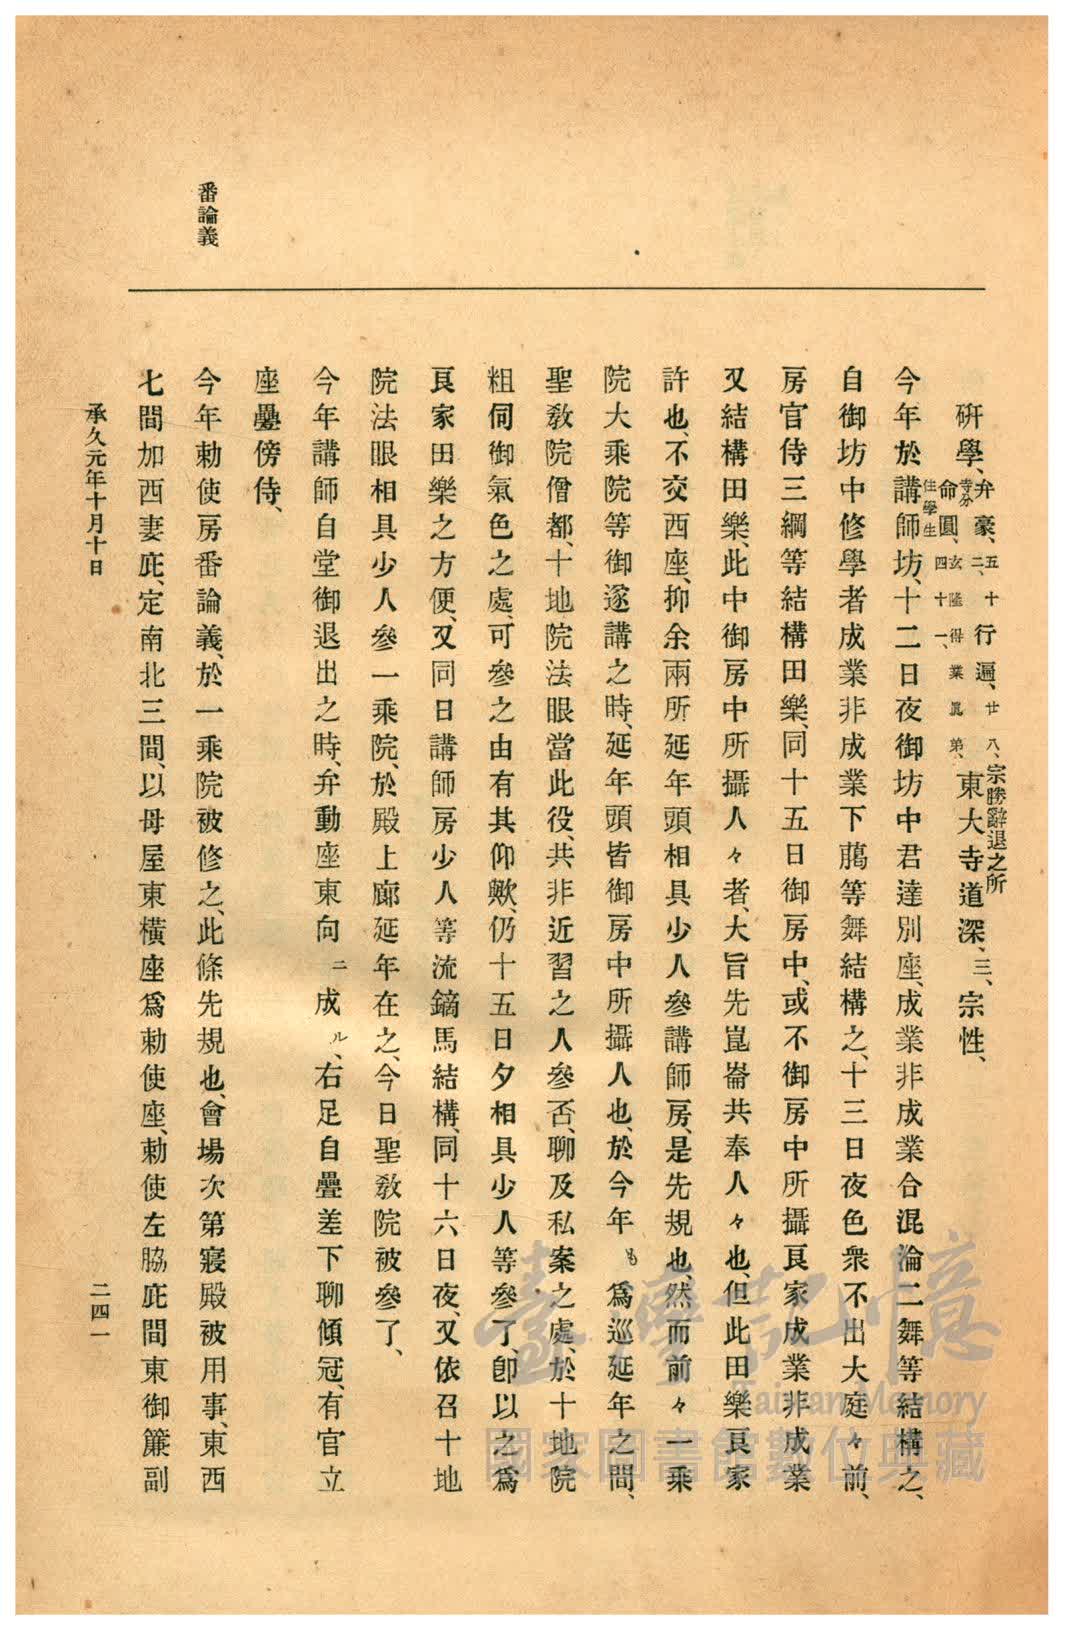 番論義
研學、弁豪、五十二、行遍、廿八、宗勝辭退之所 東大寺道深、三、宗性、
寺分住學生 命圓、四十一、玄隆得業眞弟、
今年於講師坊、十二日夜御坊中君達別座、成業非成業合混淪二舞等結構之、
自御坊中修學者成業非成業下﨟等舞結構之、十三日夜色衆不出大庭々前、
房官侍三綱等結構田樂、同十五日御房中、或不御房中所攝良家成業非成業
又結構田樂、此中御房中所攝人々者、大旨先崑崙共奉人々也、但此田樂良家
許也、不交西座、抑余兩所延年頭、相具少人參講師房、是先規也、然而前々一乘
院大乘院等御遂講之時、延年頭皆御房中所攝人也、於今年も爲巡延年之間、
聖教院僧都、十地院法眼當此役、共非近習之人參否、聊及私案之處、於十地院
粗伺御氣色之處、可參之由有其仰歟、仍十五日夕相具少人等參了、卽以之爲
良家田樂之方便、又同日講師房少人等流鏑馬結構、同十六日夜、又依召十地
院法眼相具少人參一乘院、於殿上廊延年在之、今日聖教院被參了、
今年講師自堂御退出之時、弁動座東向ニ成ル、右足自疊差下聊傾冠、有官立
座疊傍侍、
今年勅使房番論義、於一乘院被修之、此條先規也、會場次第寢殿被用事、東西
七間加西妻庇、定南北三間、以母屋東橫座爲勅使座、勅使左脇庇間東御簾副
承久元年十月十日
二四一
臺灣記憶
Taiwan Memory
國家圖書館數位典藏